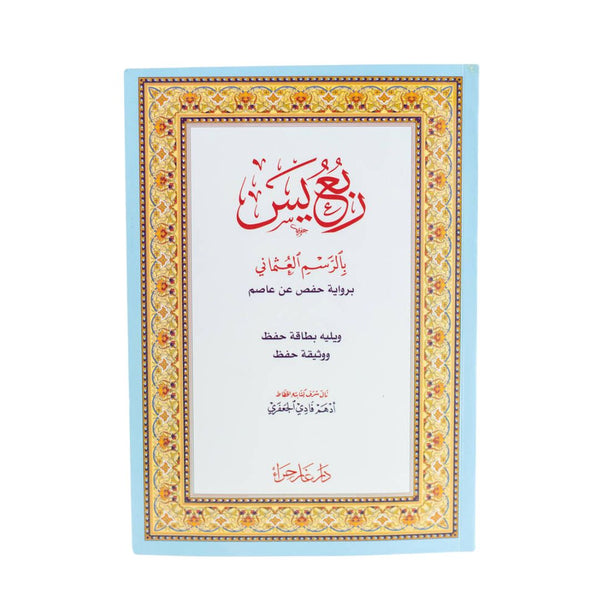 رُبُعُ يس
بِالرَّسْمِ العُثْمَاني
برواية حفص عن عاصم
ويليه بطاقة حفظ
ووثيقة حفظ
نال شرف كتابته الخطاط
أدهم فادي الجعفري
دار غار حراء